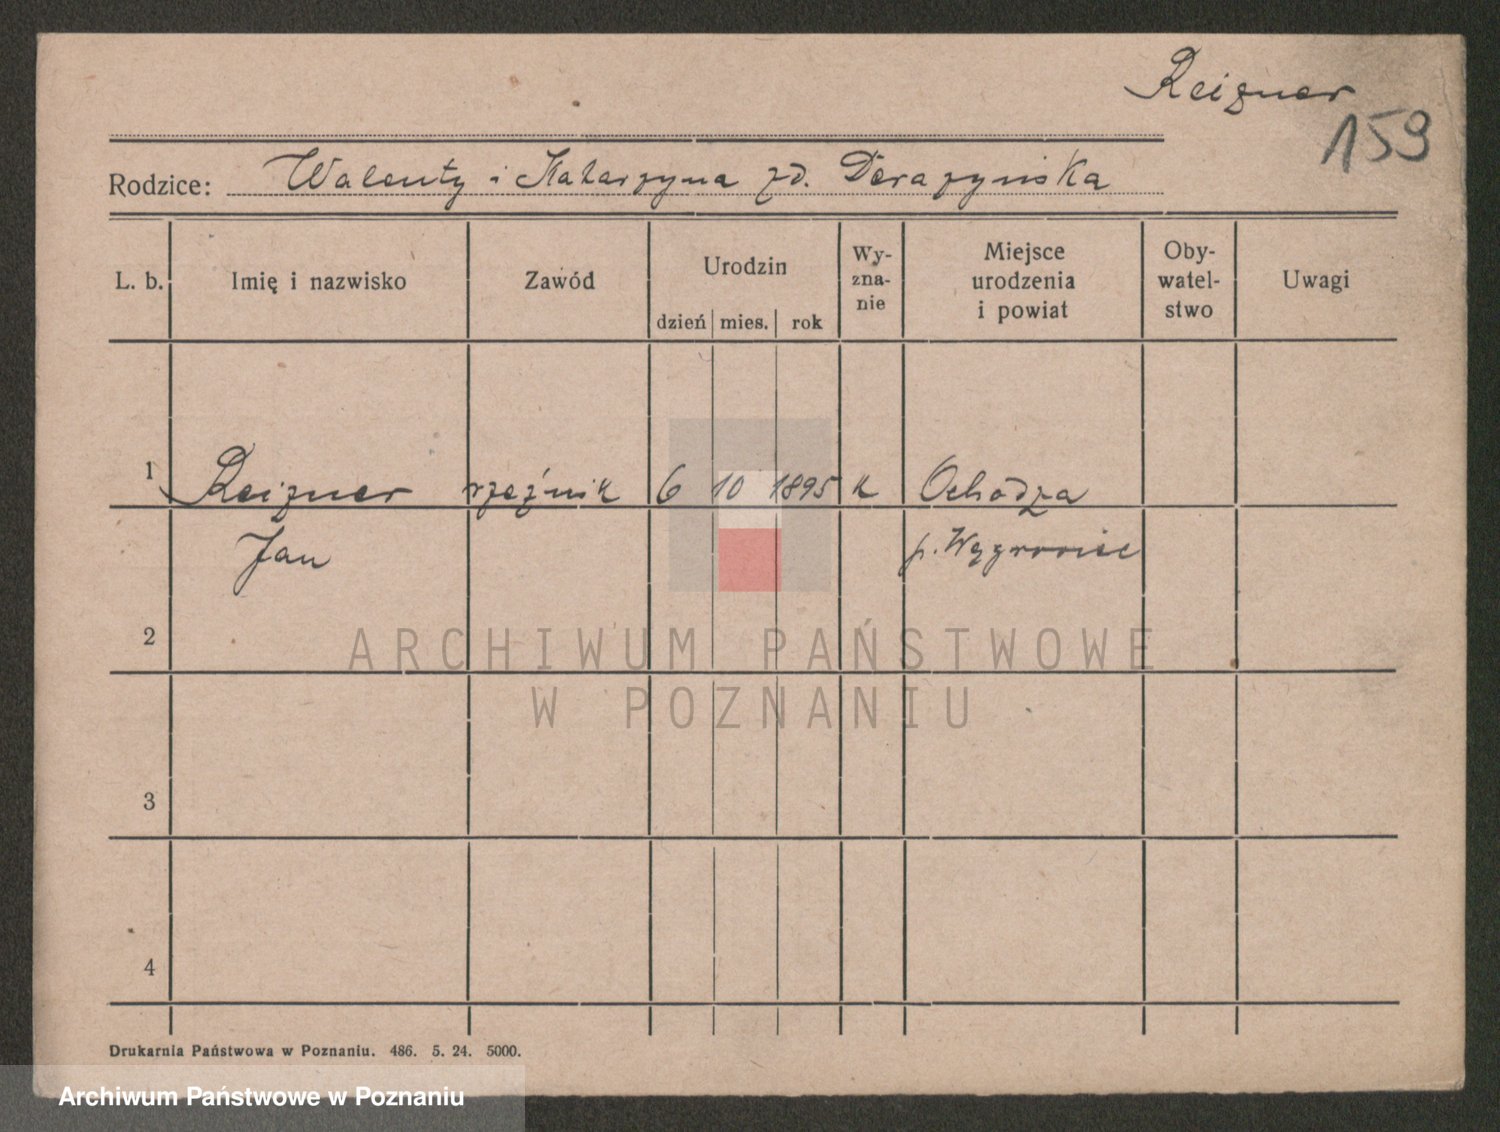 Reizner
159
Rodzice: Walenty i Katarzyna zd. Derazyńska
L. b. Imię i nazwisko Zawód Urodzin dzień mies. rok Wy-zna-nie Miejsce urodzenia i powiat Oby-watel-stwo Uwagi
1 Reizner rzeźnik 6 10 1895 k Ochodza
Jan p. Wągrowiec
2
ARCHIWUM PAŃSTWOWE
W POZNANIU
3
4
Drukarnia Państwowa w Poznaniu. 486. 5. 24. 5000.
Archiwum Państwowe w Poznaniu